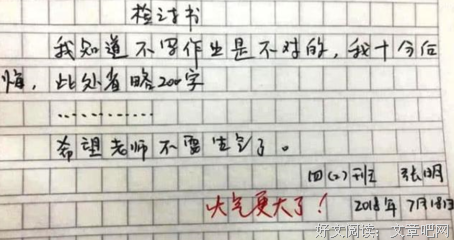 检讨书
我知道不写作业是不对的，我十分后
悔，此处省略200字
…………
希望老师不要生气了。
四(2)班 张明
火气更大了！ 2018年7月18日
好文阅读：文章吧网